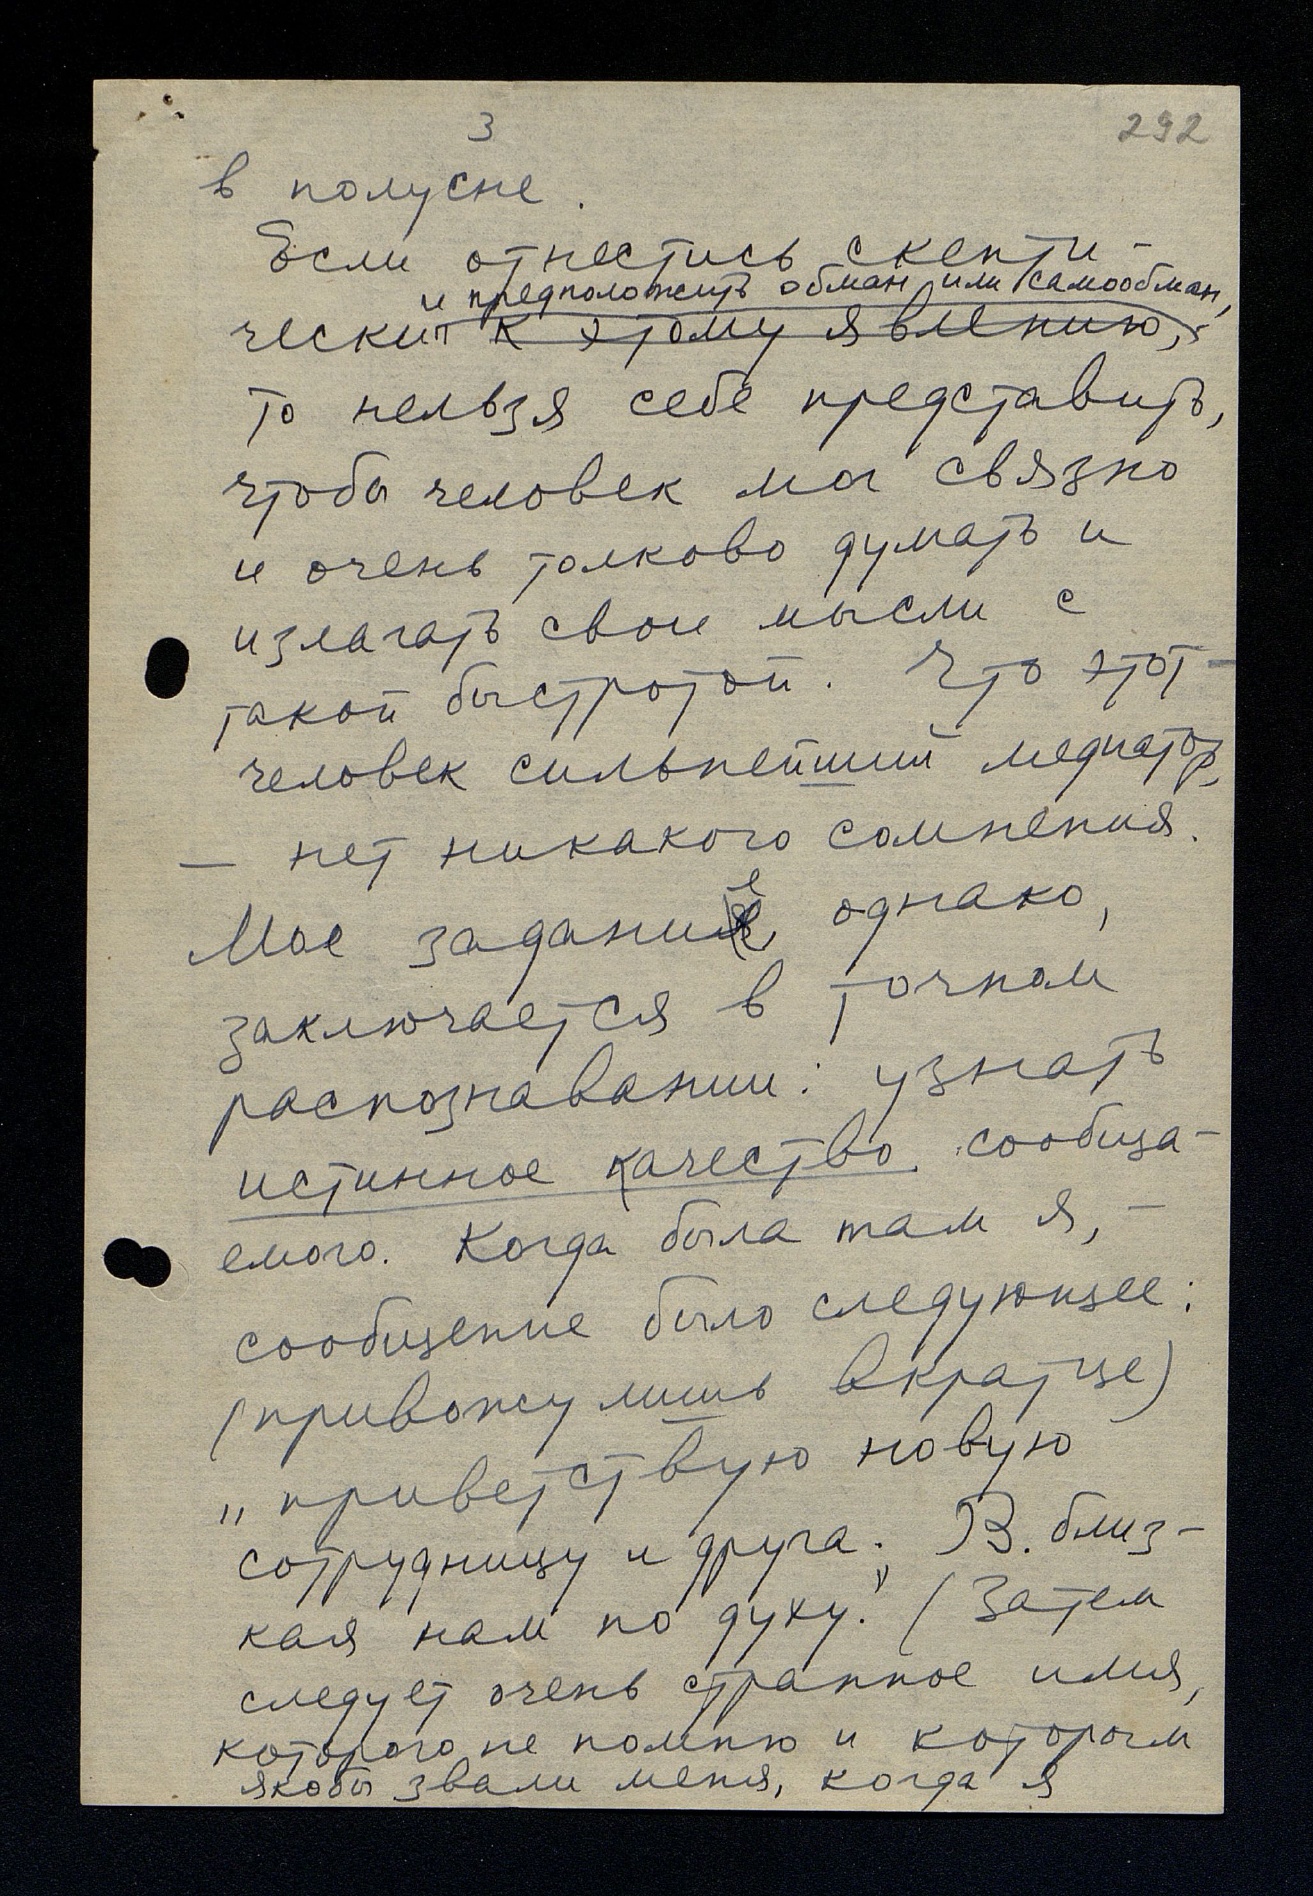 3
292
в полусне.
Если отнестись скепти-
и предположить обман или самообман,
чески к этому явлению,
то нельзя себе представить,
чтобы человек мог связно
и очень толково думать и
излагать свои мысли с
такой быстротой. Что этот –
человек сильнейший медиатор,
— нет никакого сомнения.
Мое задание, однако,
заключается в точном
распознавании: узнать
истинное качество сообща-
емого. Когда была там я, –
сообщение было следующее:
(привожу лишь вкратце)
„приветствую новую
сотрудницу и друга. В. близ-
кая нам по духу." (Затем
следует очень странное имя,
которого не помню и которым
якобы звали меня, когда я